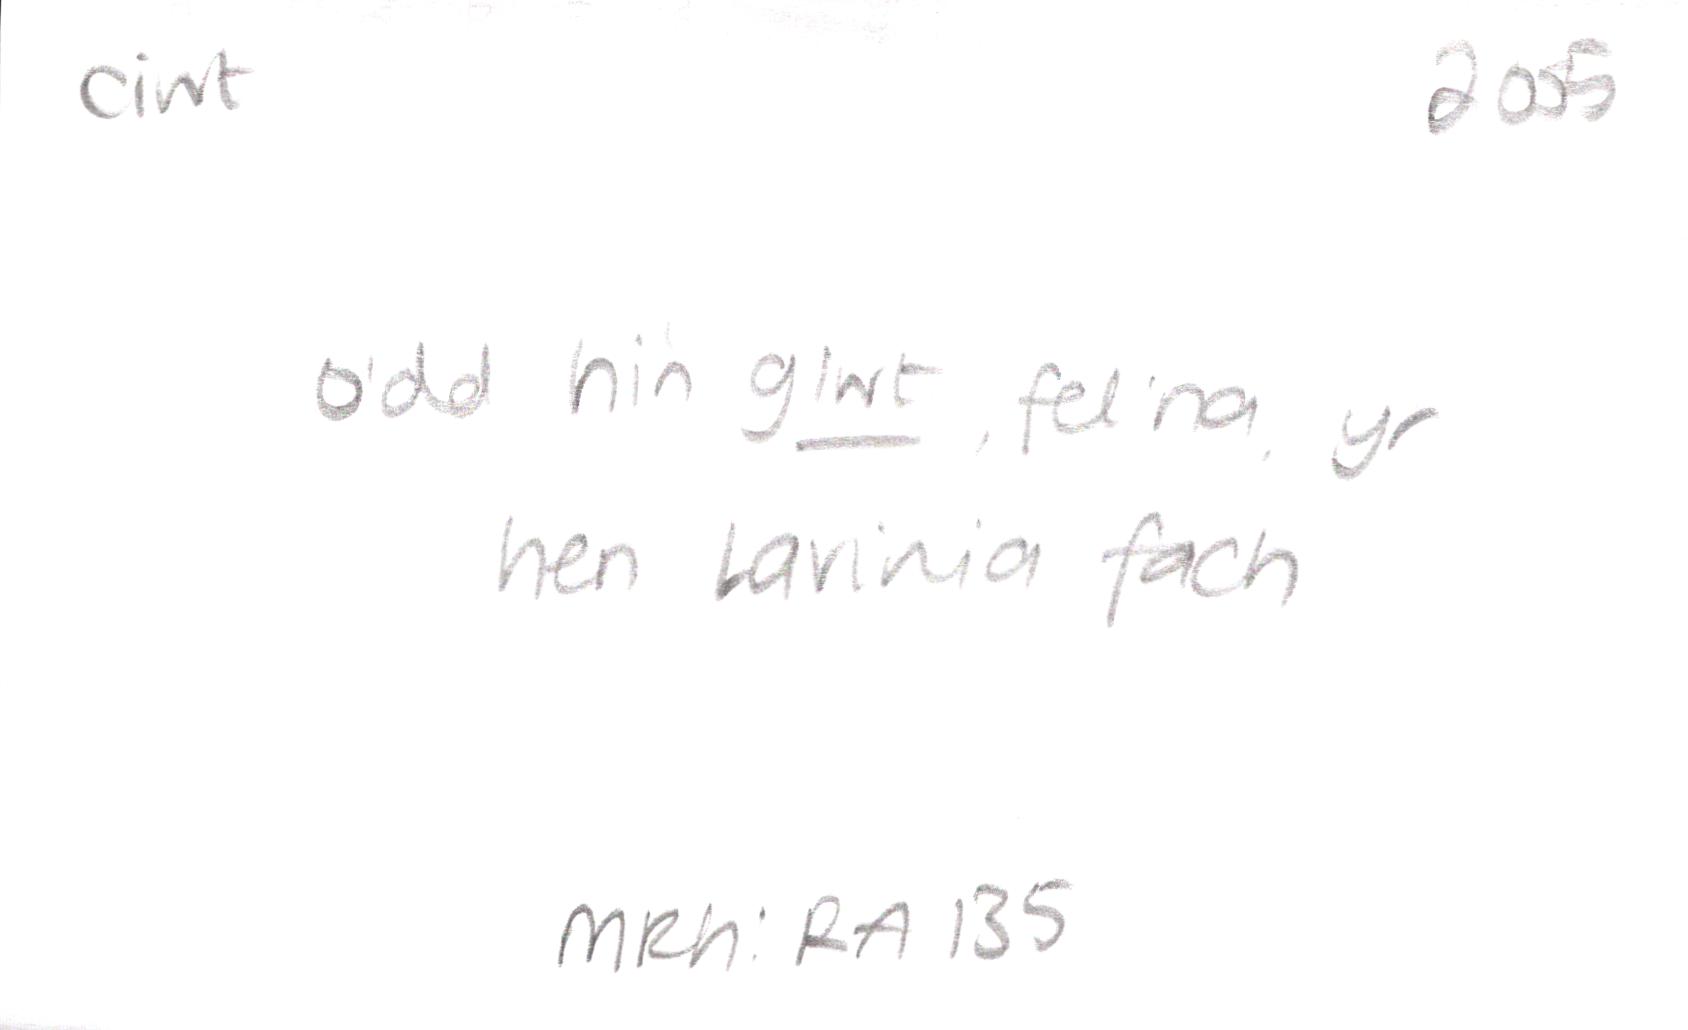 ciwt 2005
odd hin giwt, fel'na, yr
hen Lavinia fach
MRh: RA 135